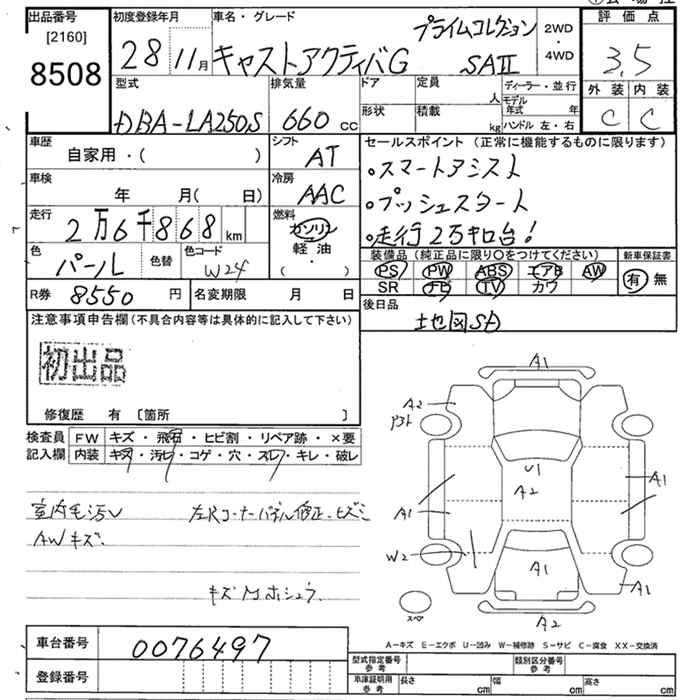 出品番号
[2160]
8508
初度登録年月
28 11月
車名・グレード
プライムコレクション
キャストアクティバG SAⅡ
2WD
・
4WD
評価点
3.5
外装 内装
C C
型式
DBA-LA250S
排気量
660 cc
ドア
定員
人
形状
積載
kg
ディーラー・並行
モデル年式 年
ハンドル 左・右
車歴
自家用・( )
シフト
AT
車検
年 月( 日)
冷房
AAC
走行
2万6千868 km
燃料
ガソリン
軽油
・
( )
色
パール
色替
色コード
W24
R券
8550 円
名変期限 月 日
セールスポイント(正常に機能するものに限ります)
・スマートアシスト
・プッシュスタート
・走行2万キロ台!
装備品(純正品に限り○をつけてください)
PS PW ABS エアB AW
SR ナビ TV カワ
新車保証書
有 無
後日品
地図SD
注意事項申告欄(不具合内容等は具体的に記入して下さい)
初出品
修復歴 有 [箇所 ]
検査員
記入欄
FW キズ・飛石・ヒビ割・リペア跡・×要
内装 キズ・汚レ・コゲ・穴・スレ・キレ・破レ
室内毛汚レ
左Rコーナーパネル修正ヒズミ
AWキズ
キズ
ホシュウ
A1
A2
U1
A2
A1
A1
A1
W2
A1
A1
A2
スペア
A-キズ E-エクボ U-凹み W-補修跡 S-サビ C-腐食 XX-交換済
車台番号
0076497
登録番号
型式指定番号
参考
類別区分番号
参考
車庫証明用
参考
長さ cm
幅 cm
高さ cm